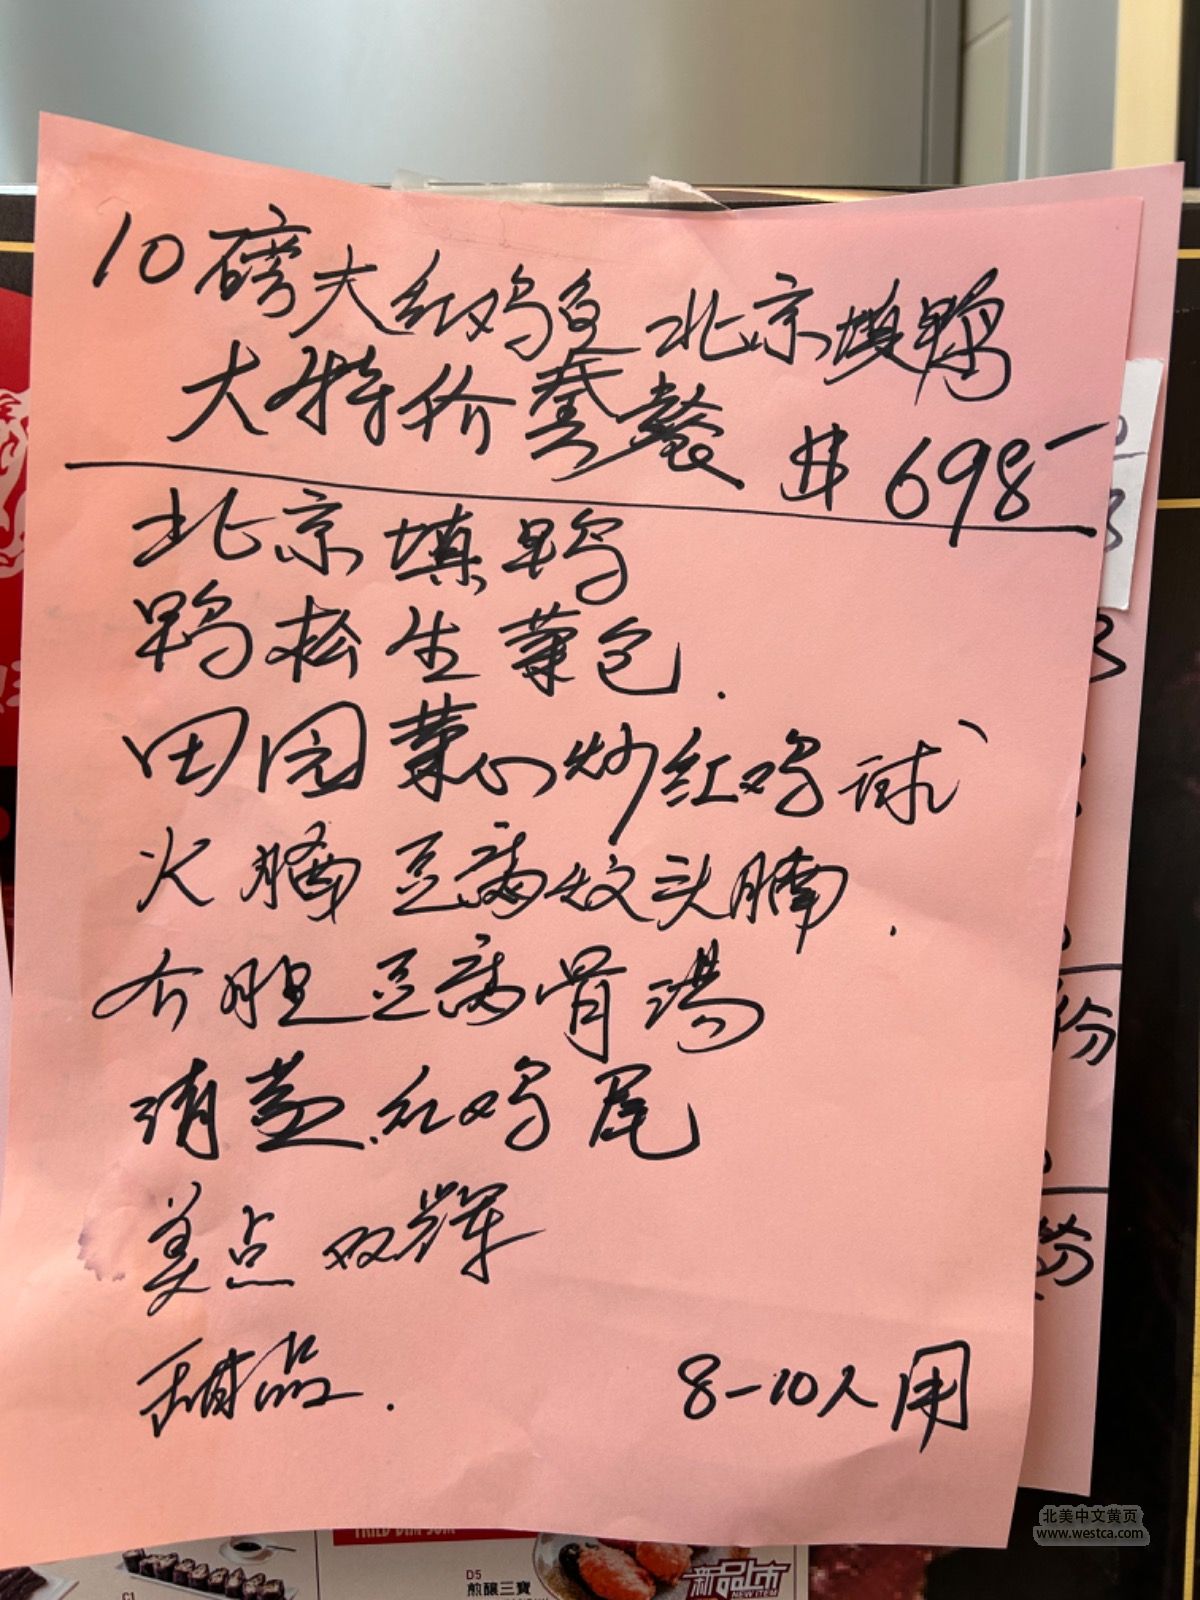 10磅大红鸡鱼北京填鸭
大特价套餐 $698-
北京填鸭
鸭松生菜包.
田园菜心炒红鸡球
火腩豆腐炆头腩.
介胆豆腐骨湯
清蒸红鸡尾
美点双辉
甜品.
8-10人用
份
FRIED DIM SUM
C1
D5
煎釀三寶
新品上市
NEW ITEM
北美中文黄页
www.westca.com